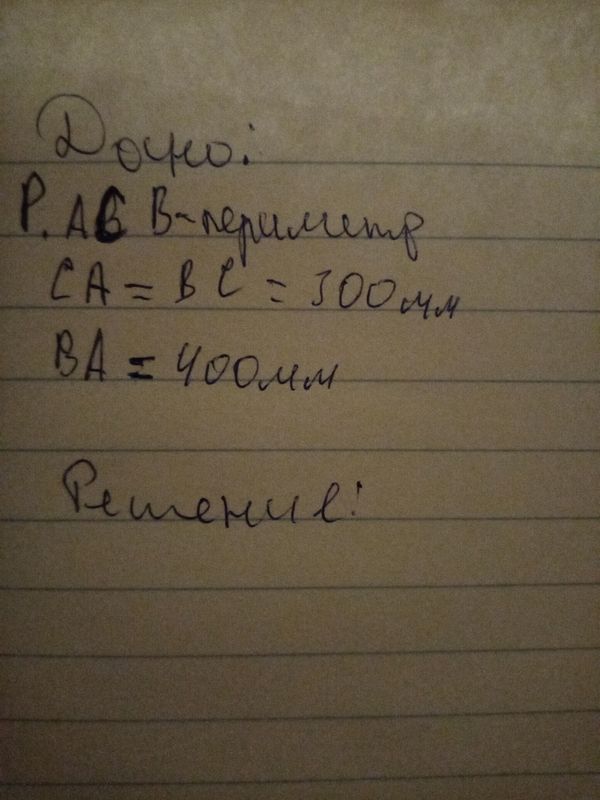 Дано:
P. ACB-периметр
CA = BC = 300мм
BA = 400мм
Решение: